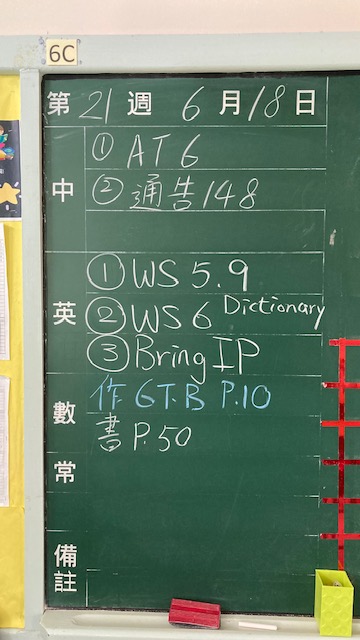 6C
第 21 週 6 月 18 日
中 ① AT 6
② 通告 148
英 ① WS 5.9
② WS 6 Dictionary
③ Bring IP
數 作 GT.B P.10
書 P.50
常
備註